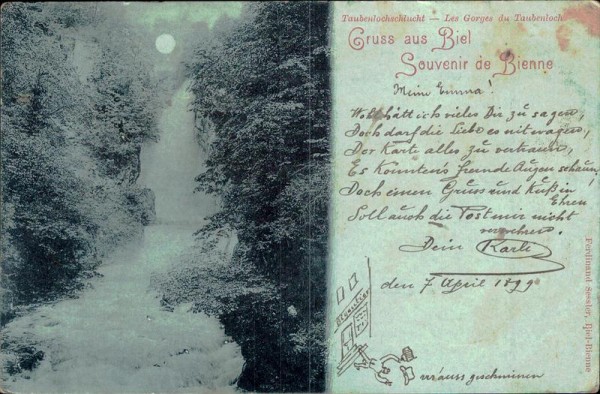 Taubenlochschlucht — Les Gorges du Taubenloch
Gruss aus Biel
Souvenir de Bienne
Meine Emma!
Wohl hätt ich vieles Dir zu sagen,
Doch darf die Liebe es nit wagen,
Der Karte alles zu vertraun,
Es könnten's fremde Augen schaun!
Doch einen Gruss und Kuß in
Ehren
Soll auch die Post mir nicht
verwehren.
Dein Karli
den 7 April 1899
Ferdinand Sessler, Biel-Bienne